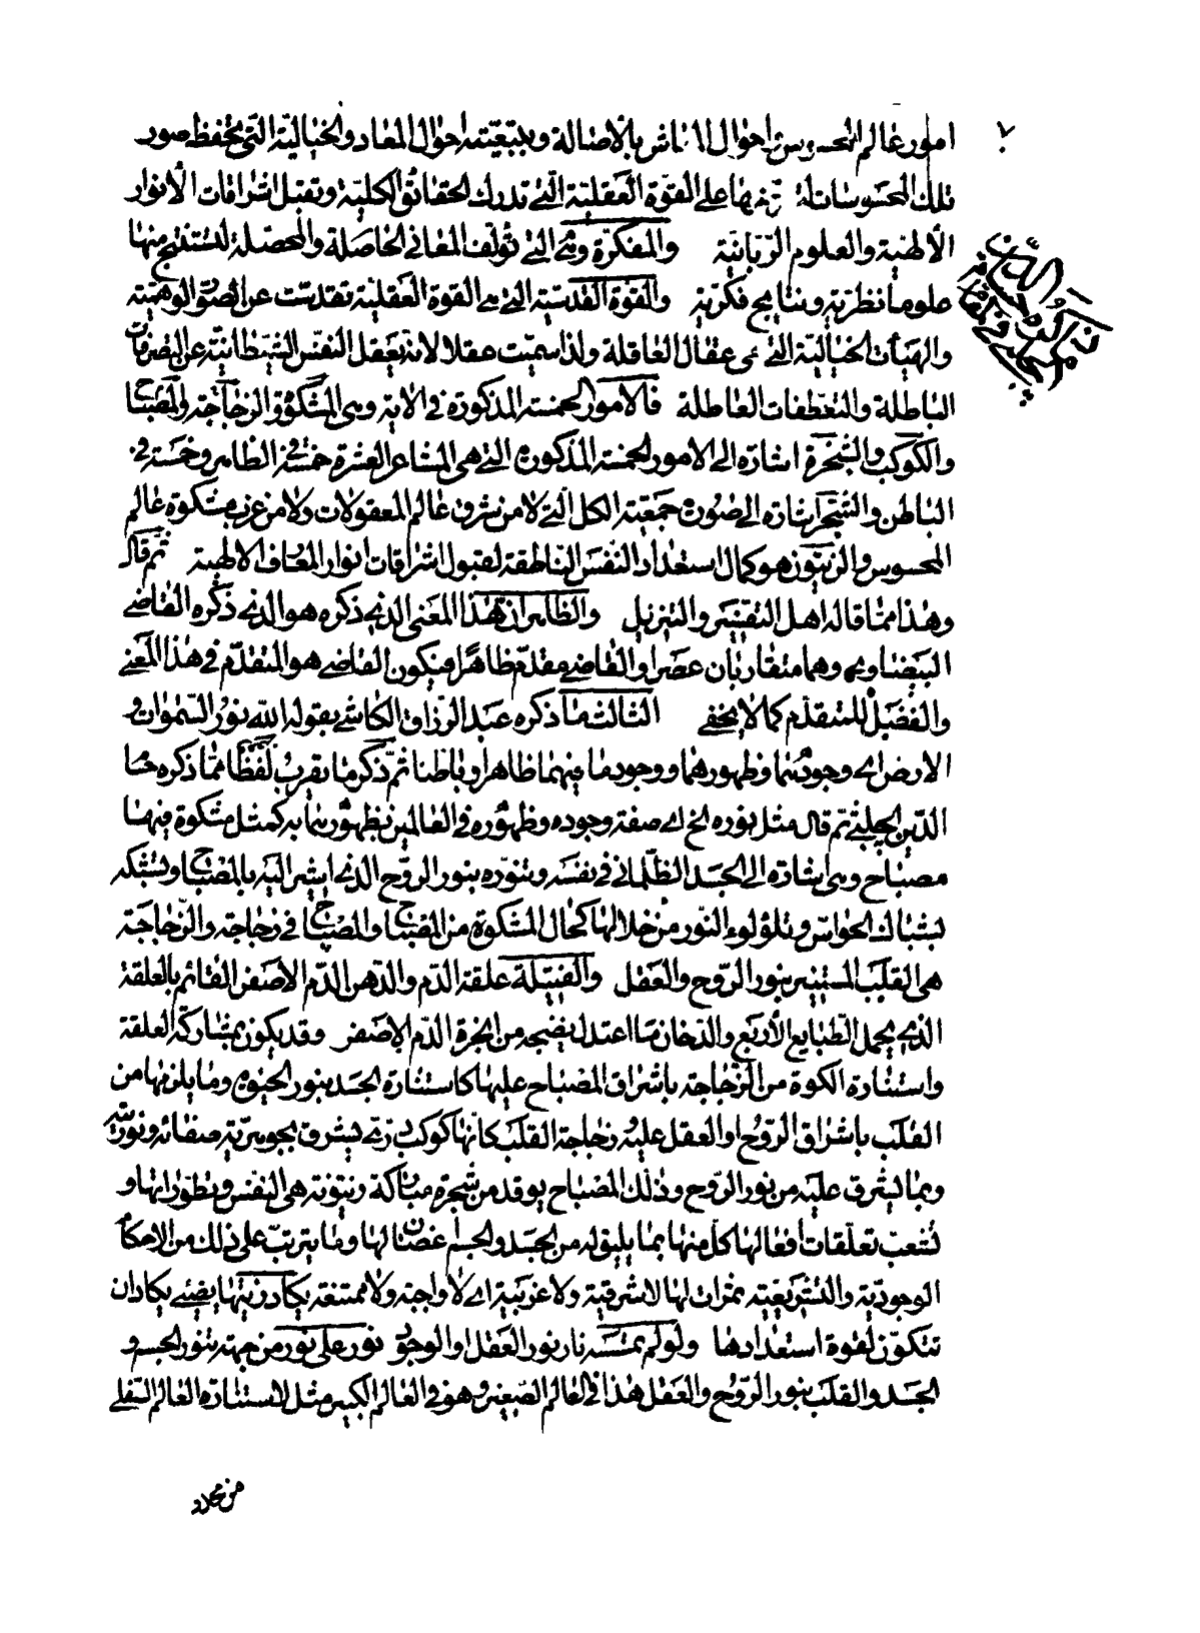 امور عالم المحسوس احوال المعاش بالاصالة وبتبعيته احوال المعاد والخيالية التي تحفظ صور
تلك المحسوسات على القوة العقلية التي تدرك الحقائق الكلية وتقبل اشراقات الانوار
الالهية والعلوم الربانية والمفكرة وهي التي تؤلف المعاني الحاصلة والمحصلة لتستنتج منها
علوما نظرية ونتايج فكرية والقوة القدسية التي هي القوة العقلية تقدست عن الصور الوهمية
والهيأت الخيالية التي هي عقال العاقلة ولذا سميت عقلا لانه يعقل النفس الشيطانية عن التصرفات
الباطلة والتعطفات العاطلة فالامور الخمسة المذكورة في الاية وهي المشكوة والزجاجة والمصباح
والكوكب والشجرة اشارة الى الامور الخمسة المذكورة التي هي المشاعر العشرة خمسة في الظاهر وخمسة في
الباطن والشجرة اشارة الى صورة جمعية الكل التي لا من شرق عالم المعقولات ولا من غرب مشكوة عالم
المحسوس والزيتون هو كمال استعداد النفس الناطقة لقبول اشراقات انوار المعارف الالهية ثم قال
وهذا مما قاله اهل التفسير والتنزيل والظاهر ان هذا المعنى الذي ذكره هو الذي ذكره القاضي
البيضاوي وهما متقاربان عصرا والقاضي مقدم ظاهرا فيكون القاضي هو المتقدم في هذا المعنى
والفضل للمتقدم كما لا يخفى الثالث ما ذكره عبد الرزاق الكاشي بقوله الله نور السموات و
الارض اي وجودهما وظهورهما ووجود ما بينهما ظاهرا وباطنا ثم ذكر ما يقرب لفظا مما ذكره حسا
الدين الچلبي ثم قال مثل نوره الخ اي صفة وجوده وظهوره في العالمين بظهورهما به كمثل مشكوة فيها
مصباح وهي اشارة الى الجسد الظلماني في نفسه وتنوره بنور الروح الذي اشير اليه بالمصباح وتشبكه
بشباك الحواس وتلؤلوء النور من خلالها كحال المشكوة من المصباح والمصباح في زجاجة والزجاجة
هي القلب المستنير بنور الروح والعقل والفتيلة علقة الدم والدهن الدم الاصفر القائم بالعلقة
الذي يحمل الطبايع الأربع والدخان ما اعتدل بنضجه من ابخرة الدم الاصفر وقد يكون بمشاركة العلقة
واستنارة الكوة من الزجاجة باشراق المصباح عليها كاستنارة الجسد بنور الحيوة وما يلزمها من
القلب باشراق الروح او العقل عليه زجاجة القلب كانها كوكب دري يشرق بجوهرية صفائه ونوريته
وبما يشرق عليه من نور الروح وذلك المصباح يوقد من شجرة مباركة زيتونة هي النفس وتطوراتها و
تشعب تعلقات افعالها كل منها بما يليق له من الجسد والجسم اغصان لها وما يترتب على ذلك من الاحكام
الوجودية والتشريعية ثمرات لها لا شرقية ولا غربية اي لا واجبة ولا ممتنعة يكاد زيتها يضيئ يكاد ان
تتكون لقوة استعدادها ولو لم تمسسه نار نور العقل او الوجود نور على نور من جهة تنور الجسم و
الجسد والقلب بنور الروح والعقل هذا في العالم الصغير وهو في العالم الكبير مثل لاستنارة العالم السفلي